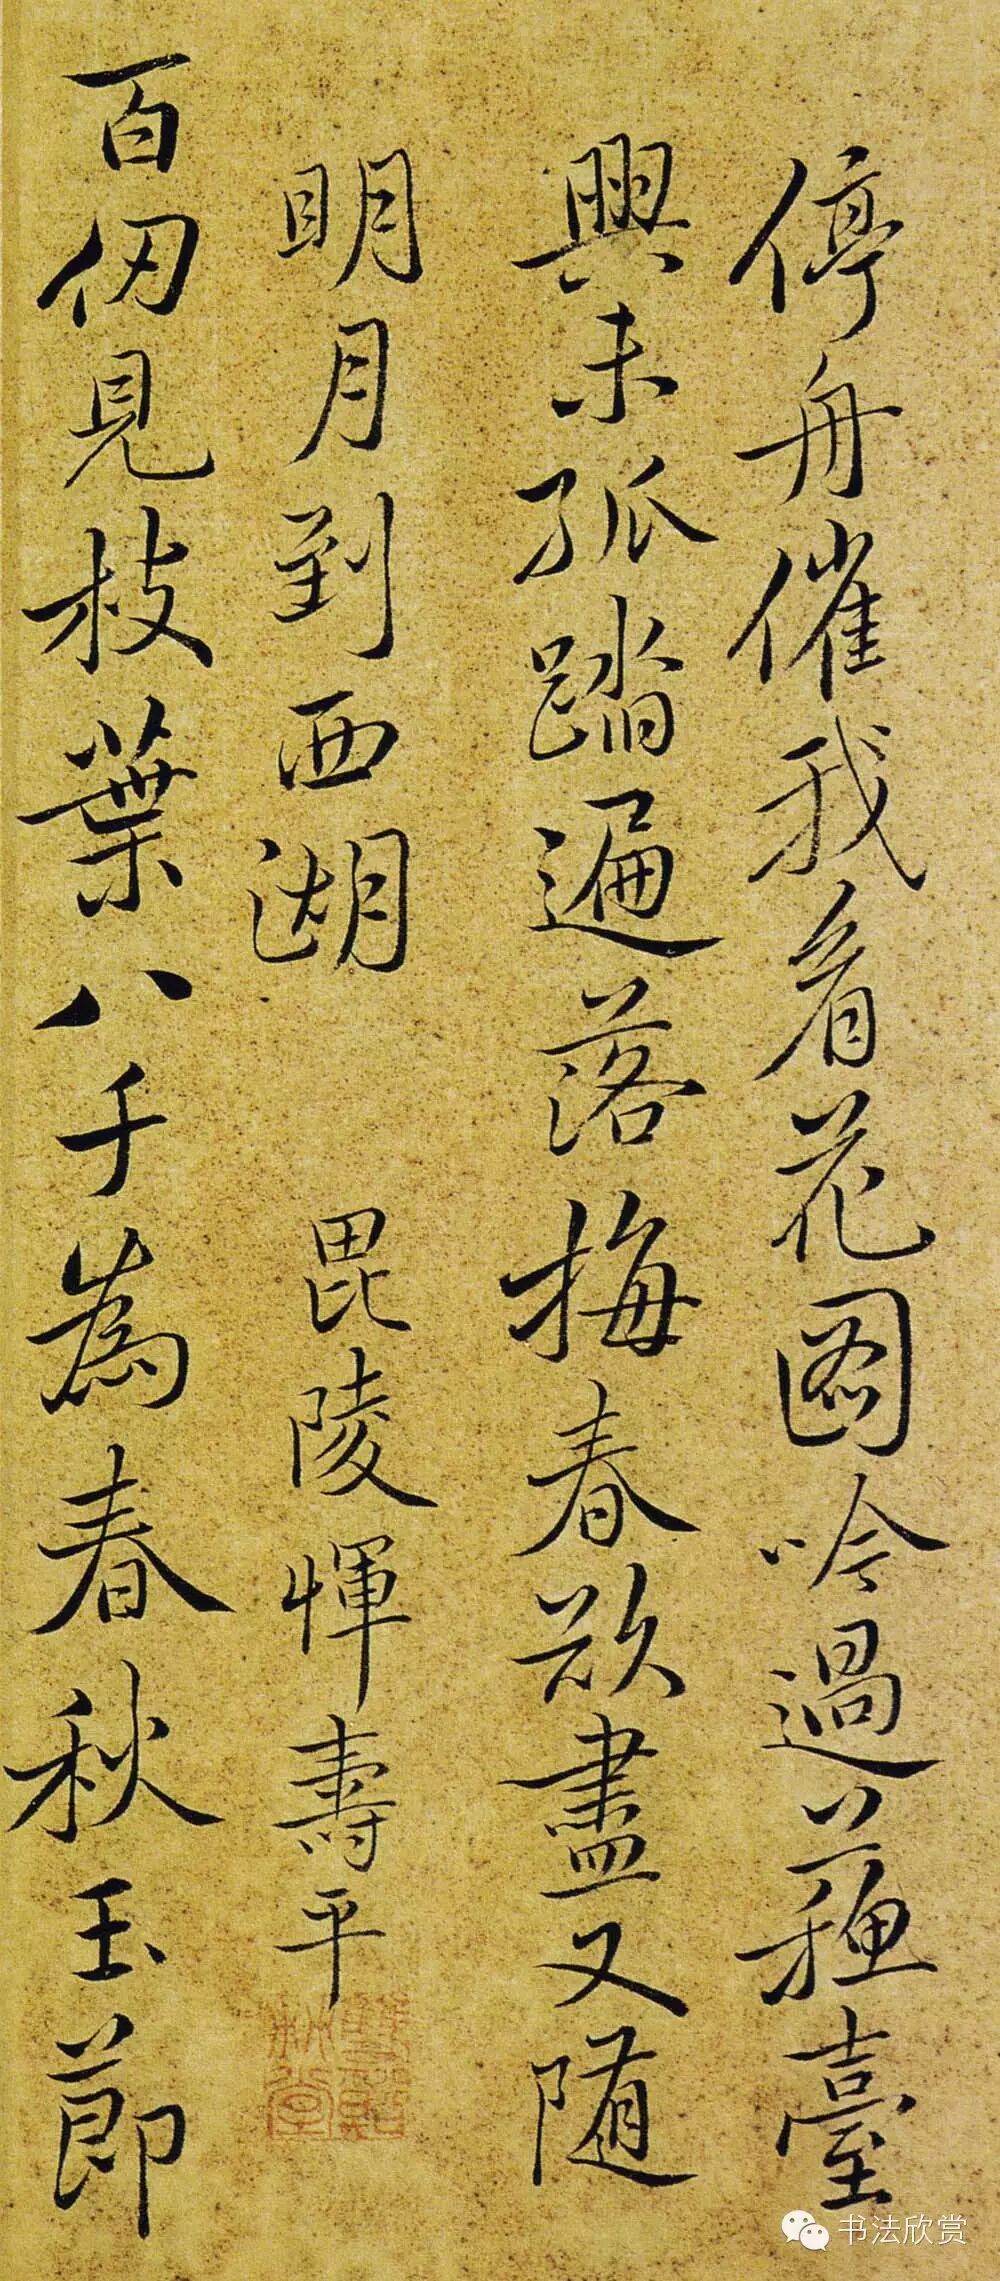 停舟催我看花圖吟過蘓臺
興未孤踏遍落梅春欲盡又随
明月到西湖 毘陵惲壽平
百仞見枝葉八千為春秋玉節
书法欣赏